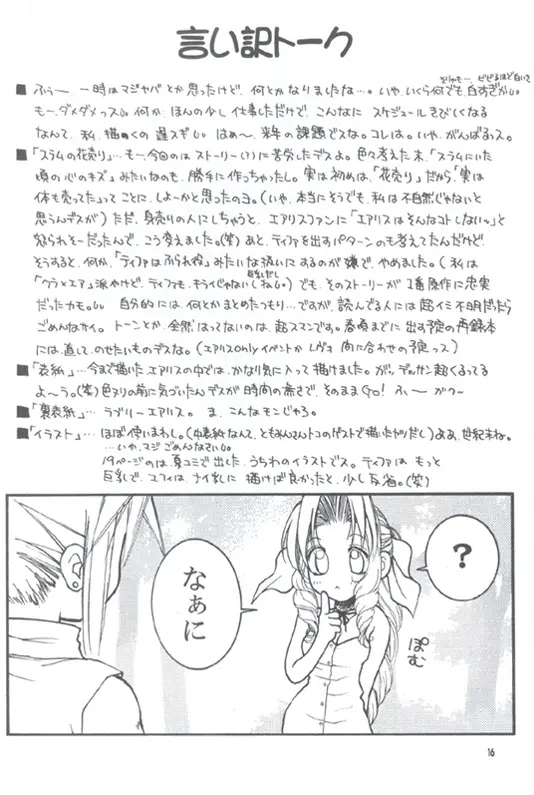 言い訳トーク
そりゃもー、ビビるほど白いで
■ ふぅー、一時はマジヤバとか思ったけど、何とかなりましたな…。いや、いくら何でも、白すぎかも。
もー、ダメダメっス。何か、ほんの少し仕事しただけで、こんなに スケジュールきびしくなる
なんて、私、描くの 遅スギ。はぁ〜、来年の課題でスな。コレは。いや、がんばるっス。
■「スラムの花売り」…も〜、今回のは ストーリー(?)に苦労したデスよ。色々考えた末、「スラムにいた
頃の心のキズ」みたいなのも、勝手に作っちゃったし。実は初めは、「花売り」だから「実は
体も売ってたよ」ってことに、しよーかと思ったのヨ。(いや、本当にそうでも、私は不自然じゃないと
思うんデスが) ただ、身売りの人にしちゃうと、エアリスファンに「エアリスはそんなコトしないッ」と
怒られそーだったんで、こう考えました。(笑) あと、ティファを出すパターンのも考えてたんだけど、
そうすると、何か、「ティファはふられ役」みたいな扱いにするのが嫌で、やめました。(私は
「クラ×エア」派やけど、ティファも、もうじゃない(しね)) でも、そのストーリーが1番原作に忠実
だったカモ。自分的には、何とかまとめたつもり…ですが、読んでる人には超イミ不明だったら
ごめんなサイ。トーンとか、全然はってないのは、超スマンです。春頃までに 出す予定の再録本
には、直して、のせたいものデスな。(エアリスonlyイベントか レヴォ 間に合わせの予定っス)
■「表紙」…今まで描いたエアリスの中では、かなり気に入って描けました。が、デッサン超くるってる
よ〜う。(笑) 色ヌリの前に気づいたんデスが時間の無さで、そのままGO! ふー がクー
■「裏表紙」… ラブリーエアリス。ま、こんなモンじゃろ。
■「イラスト」… ほぼ使いまわし。(中表紙なんて、ともみんさんトコのゲストで描いたヤツだし) ああ、世紀末ね。
…いや、マジごめんなさい。
19ページのは、夏コミで出した、うちわのイラストでス。ティファは もっと
巨乳で、ユフィは、ナイ乳に 描けば良かったと、少し反省。(笑)
?
なぁに
ぽむ
16